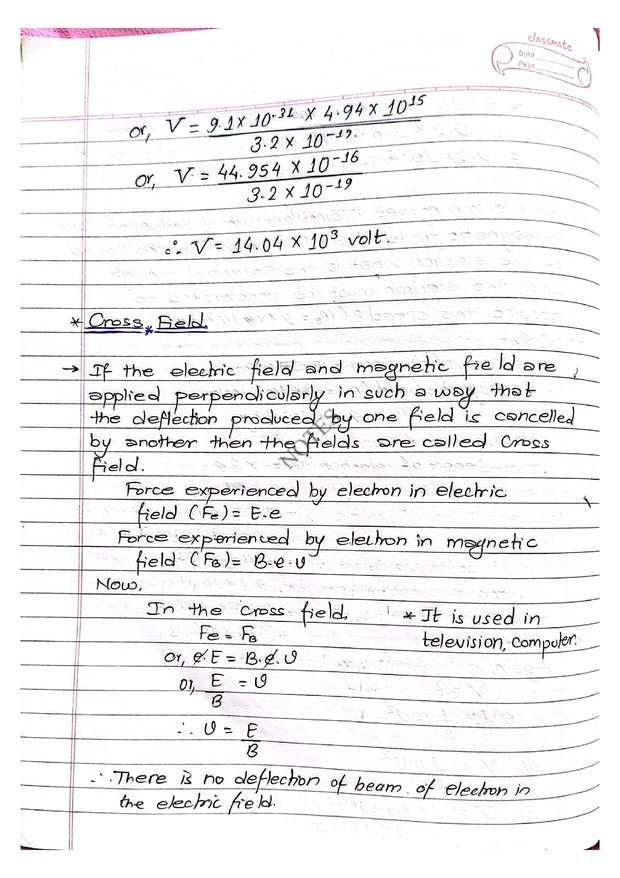 classmate
Date
Page
or, V = 9.1 × 10⁻³¹ × 4.94 × 10¹⁵
3.2 × 10⁻¹⁹
or, V = 44.954 × 10⁻¹⁶
3.2 × 10⁻¹⁹
∴ V = 14.04 × 10³ volt.
* Cross * Field
→ If the electric field and magnetic field are
applied perpendicularly in such a way that
the deflection produced by one field is cancelled
by another then the fields are called Cross
field.
NOTES
Force experienced by electron in electric
field (Fe) = E.e
Force experienced by electron in magnetic
field (FB) = B.e.v
Now,
In the cross field, * It is used in
Fe = FB television, computer.
or, e.E = B.e.v
or, E = v
B
∴ v = E
B
∴ There is no deflection of beam of electron in
the electric field.